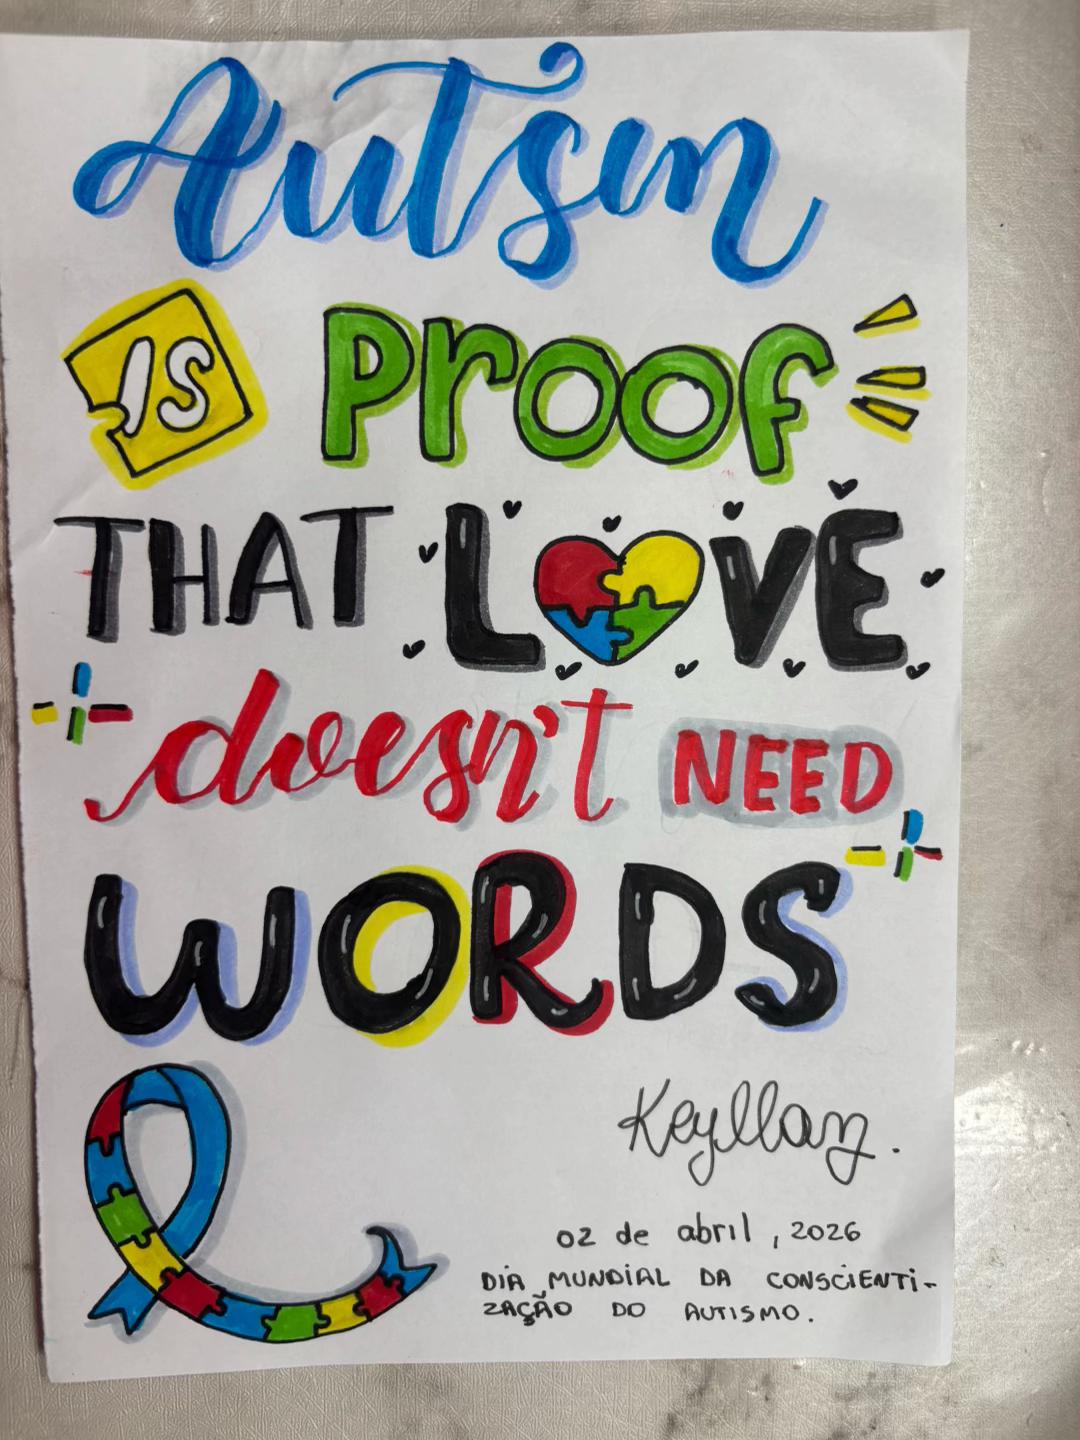 Autism
IS PrOOf
THAT LOVE
doesn't NEED
WORDS
Keyllany.
02 de abril, 2026
DIA MUNDIAL DA CONSCIENTI-
ZAÇÃO DO AUTISMO.